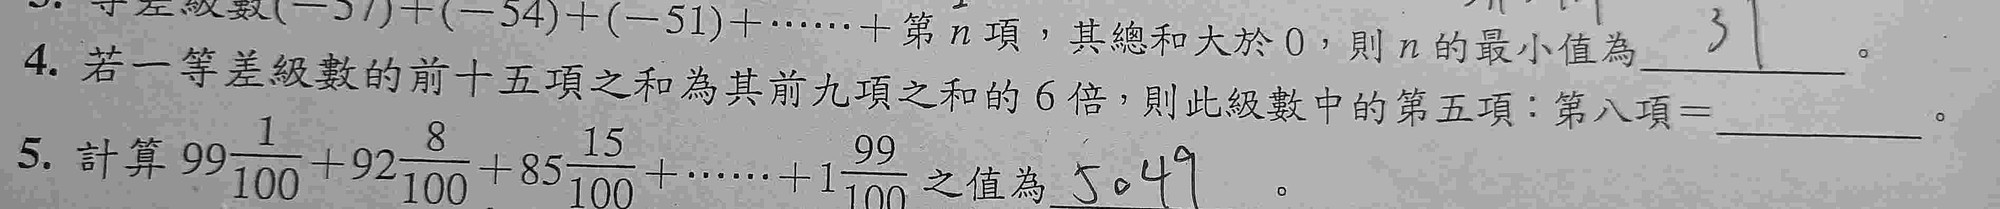 等差級數(-57)+(-54)+(-51)+⋯⋯+第 n 項，其總和大於 0，則 n 的最小值為 31 。
4. 若一等差級數的前十五項之和為其前九項之和的 6 倍，則此級數中的第五項：第八項=______。
5. 計算 99 1/100 + 92 8/100 + 85 15/100 + ⋯⋯ + 1 99/100 之值為 5049 。